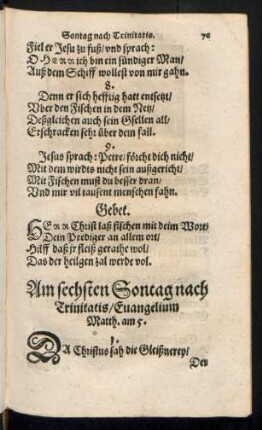 Sontag nach Trinitatis. 76
Fiel er Jesu zu fuß/vnd sprach:
O HERR ich bin ein sündiger Man/
Auß dem Schiff wollest von mir gahn.
8.
Denn er sich hefftig hatt entsetzt/
Vber den Fischen in dem Netz/
Deßgleichen auch sein Gsellen all/
Erschracken sehr über dem fall.
9.
Jesus sprach: Petre/ förcht dich nicht/
Mit dem wirdts nicht sein außgericht/
Mit Fischen must du besser dran/
Vnd mir vil tausent menschen fahn.
Gebet.
HERR Christ laß fischen mit deim Wort/
Dein Prediger an allem ort/
Hilff daß jr fleiß gerathe wol/
Das der heilgen zal werde vol.
Am sechsten Sontag nach
Trinitatis/Euangelium
Matth. am 5.
1.
DA Christus sah die Gleißnerey/
Den